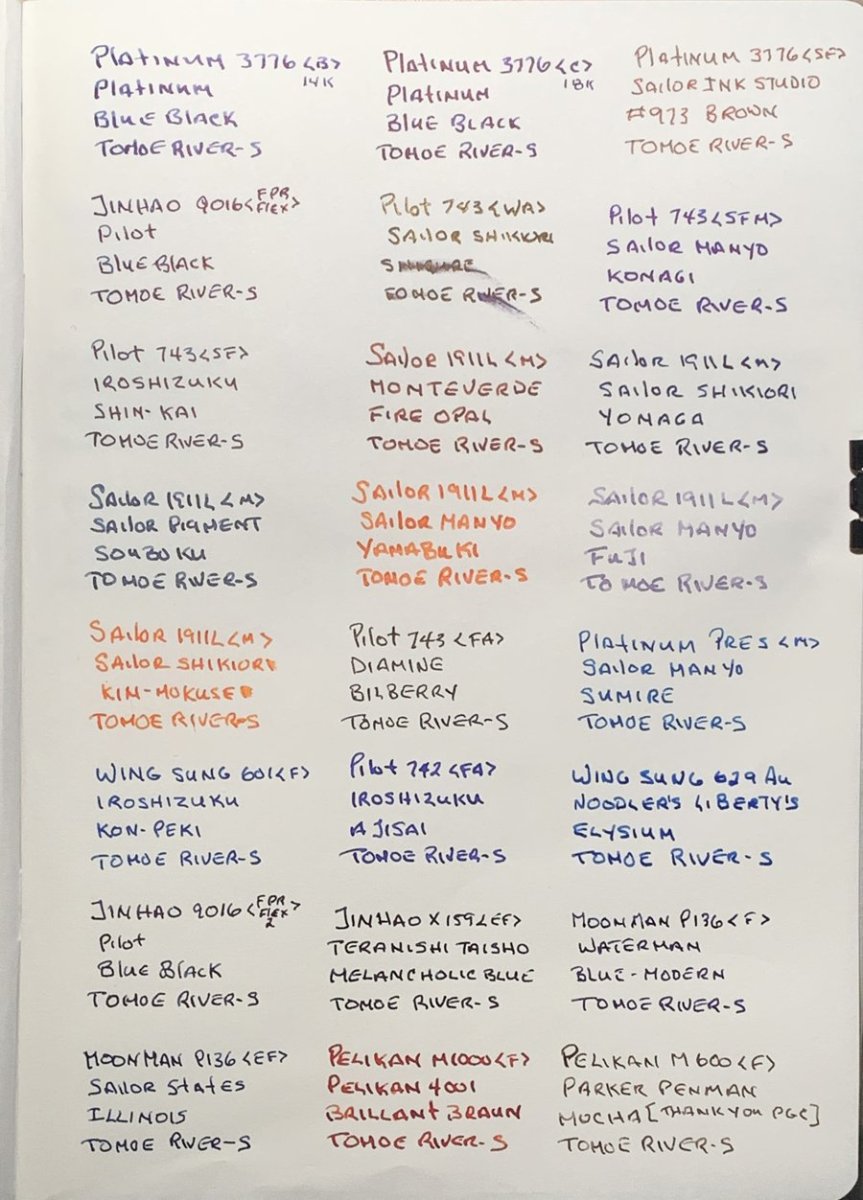 Platinum 3776 <B>
14K
Platinum
Blue Black
Tomoe River-S
Platinum 3776 <C>
18K
Platinum
Blue Black
Tomoe River-S
Platinum 3776 <SF>
Sailor Ink Studio
#973 Brown
Tomoe River-S
Jinhao 9016 <FPR Flex>
Pilot
Blue Black
Tomoe River-S
Pilot 743 <WA>
Sailor Shikiori
Tomoe River-S
Pilot 743 <SFM>
Sailor Manyo
Konagi
Tomoe River-S
Pilot 743 <SF>
Iroshizuku
Shin-Kai
Tomoe River-S
Sailor 1911L <M>
Monteverde
Fire Opal
Tomoe River-S
Sailor 1911L <M>
Sailor Shikiori
Yonaga
Tomoe River-S
Sailor 1911L <M>
Sailor Pigment
Souboku
Tomoe River-S
Sailor 1911L <M>
Sailor Manyo
Yamabuki
Tomoe River-S
Sailor 1911L <M>
Sailor Manyo
Fuji
Tomoe River-S
Sailor 1911L <M>
Sailor Shikiori
Kin-Mokusei
Tomoe River-S
Pilot 743 <FA>
Diamine
Bilberry
Tomoe River-S
Platinum Pres <M>
Sailor Manyo
Sumire
Tomoe River-S
Wing Sung 601 <F>
Iroshizuku
Kon-Peki
Tomoe River-S
Pilot 742 <FA>
Iroshizuku
Ajisai
Tomoe River-S
Wing Sung 629 Au
Noodler's Liberty's
Elysium
Tomoe River-S
Jinhao 9016 <FPR Flex 2>
Pilot
Blue Black
Tomoe River-S
Jinhao X159 <EF>
Teranishi Taisho
Melancholic Blue
Tomoe River-S
Moonman P136 <F>
Waterman
Blue-Modern
Tomoe River-S
Moonman P136 <EF>
Sailor States
Illinois
Tomoe River-S
Pelikan M1000 <F>
Pelikan 4001
Brillant Braun
Tomoe River-S
Pelikan M600 <F>
Parker Penman
Mocha [Thank you PGC]
Tomoe River-S